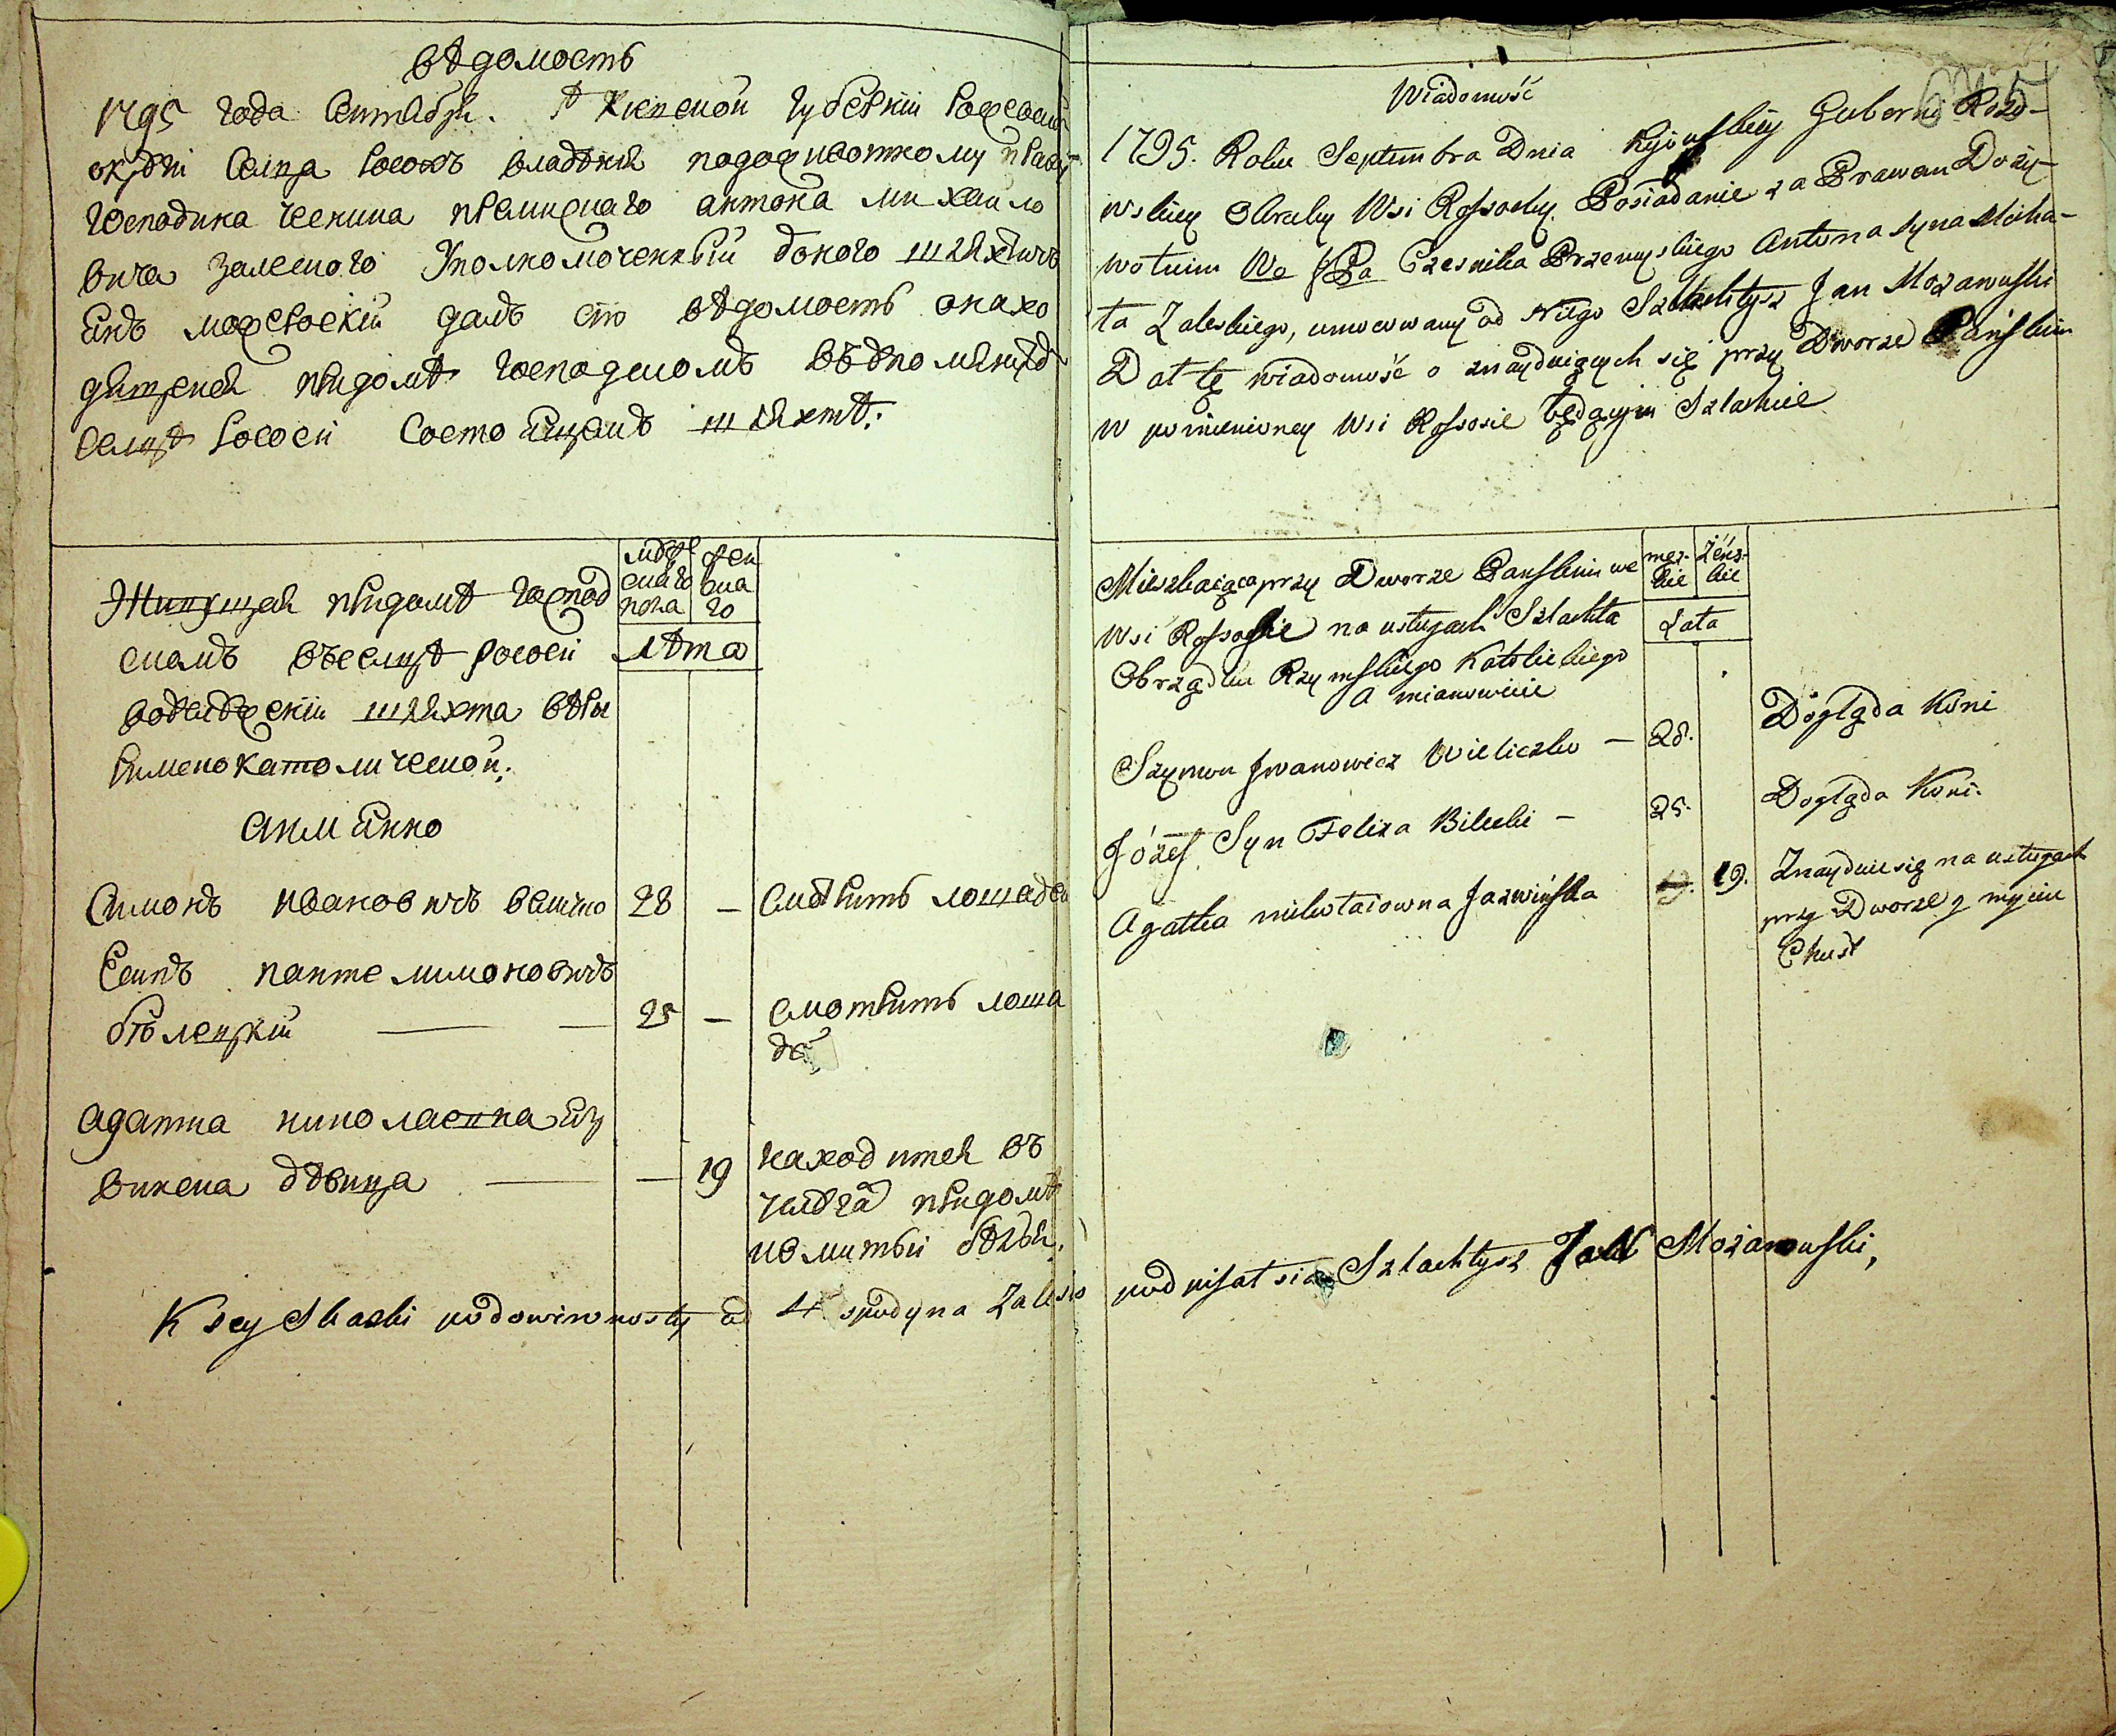 вѣдомость
1795 года Сентября. Киевской губерніи
округи Селца Росохъ владѣнія подоживотному праву
Господина чесника премиского антона михаило
вича залеского Уполномоченный онаго шляхтичъ
янъ можаровскій далъ сію вѣдомость онахо
дящихся придомѣ Господскомъ
селцѣ Рососи состоящемъ шляхтѣ:
Живущая придомѣ господ
скомъ въселцѣ рососи
шляхта вѣры
Римскокатолической.
аимянно
мужескаго пола
женскаго
лѣта
Симонъ ивановичъ величко 28 — смотритъ лошадей
Есипъ пантелимоновичъ
білецкій — — 25 — смотритъ лоша
дей
агапка николаевна яз
винска дѣвица — — 19 находится въ
услугахъ придомѣ
к мытью бѣлья.
K sey Skaski
Wiadomość
1795. Roku Septembra Dnia Kijowskiey Gubernij Rożo-
wskiey Okruhy Wsi Rossochy Posiadanie za Prawem Doży-
wotnim We JPa Czesnika Przemyskiego Antona syna Micha-
ła Zaleskiego, umocowany od Niego Szlachtysz Jan Mozarowski
Dał tę wiadomość o znayduiących się przy Dworze Pańskim
w pomienioney Wsi Rossosie będącym Szlachcie
Mieszkaiąca przy Dworze Panskim we
Wsi Rossosie na usługach Szlachta
Obrządku Rzymskiego Katolickiego
a mianowicie
męz-
kie
żéńs-
kie
Lata
Szymon Jwanowicz Wieliczko — 28. Dogląda Koni
Józef Syn Felixa Bilecki — 25. Dogląda Koni.
Agatka mikołaiowna Jazwińska 19. Znayduie się na usługach
przy Dworze y myciu
Chust
podpisał sia Szlachtysz Jan Mozarowski,